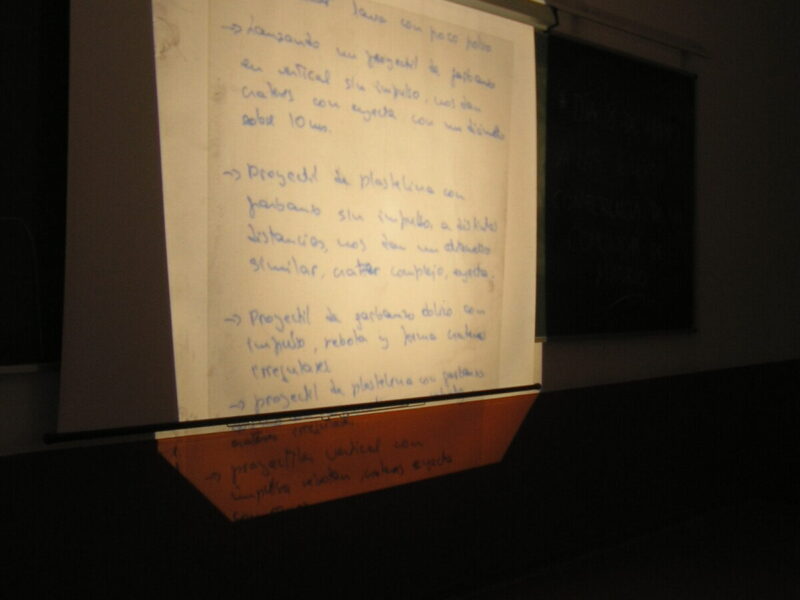 lava con poco polvo
→ Lanzando un proyectil de garbanzo
en vertical sin impulso, nos dan
crateres con eyecta con un diámetro
sobre 10 ms.
→ Proyectil de plastelina con
garbanzo sin impulso, a distintas
distancias, nos dan un diámetro
similar, crater complejo, eyecta.
→ Proyectil de garbanzo oblicuo con
impulso, rebota y forma crateres
irregulares
→ proyectil de plastelina con garbanzo
crateres irregulares.
→ proyectiles vertical con
impulso rebotan, crateres eyecta